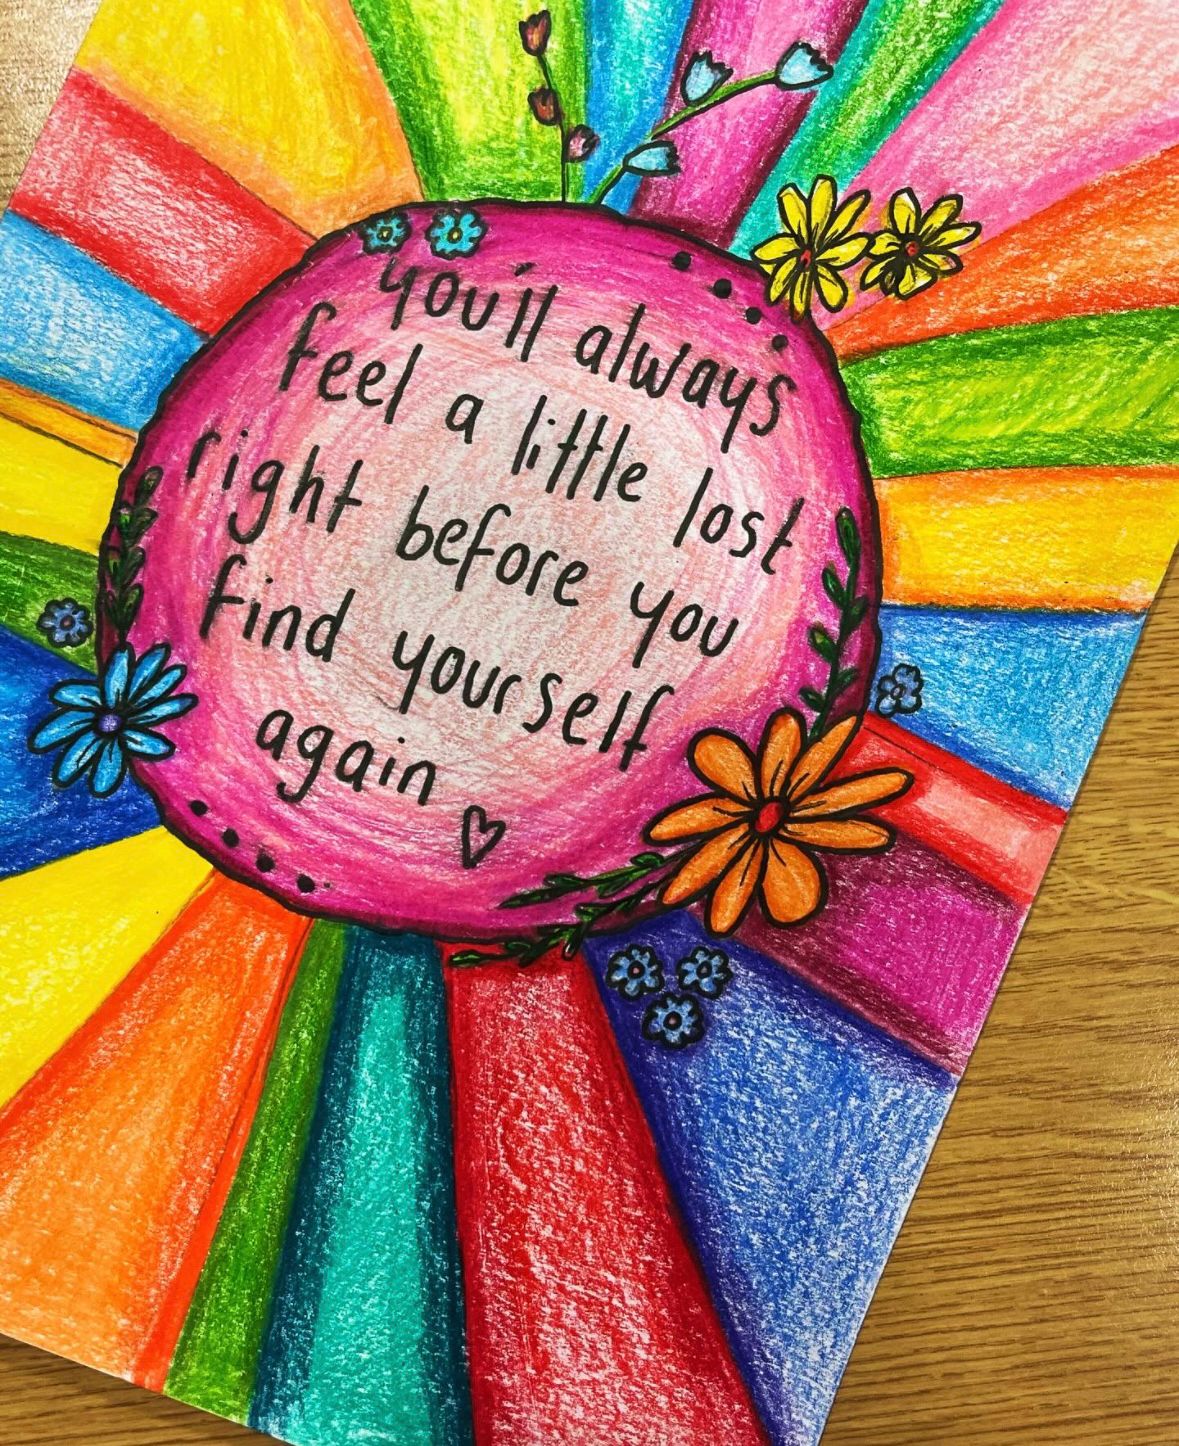 you'll always
feel a little lost
right before you
find yourself
again ♡